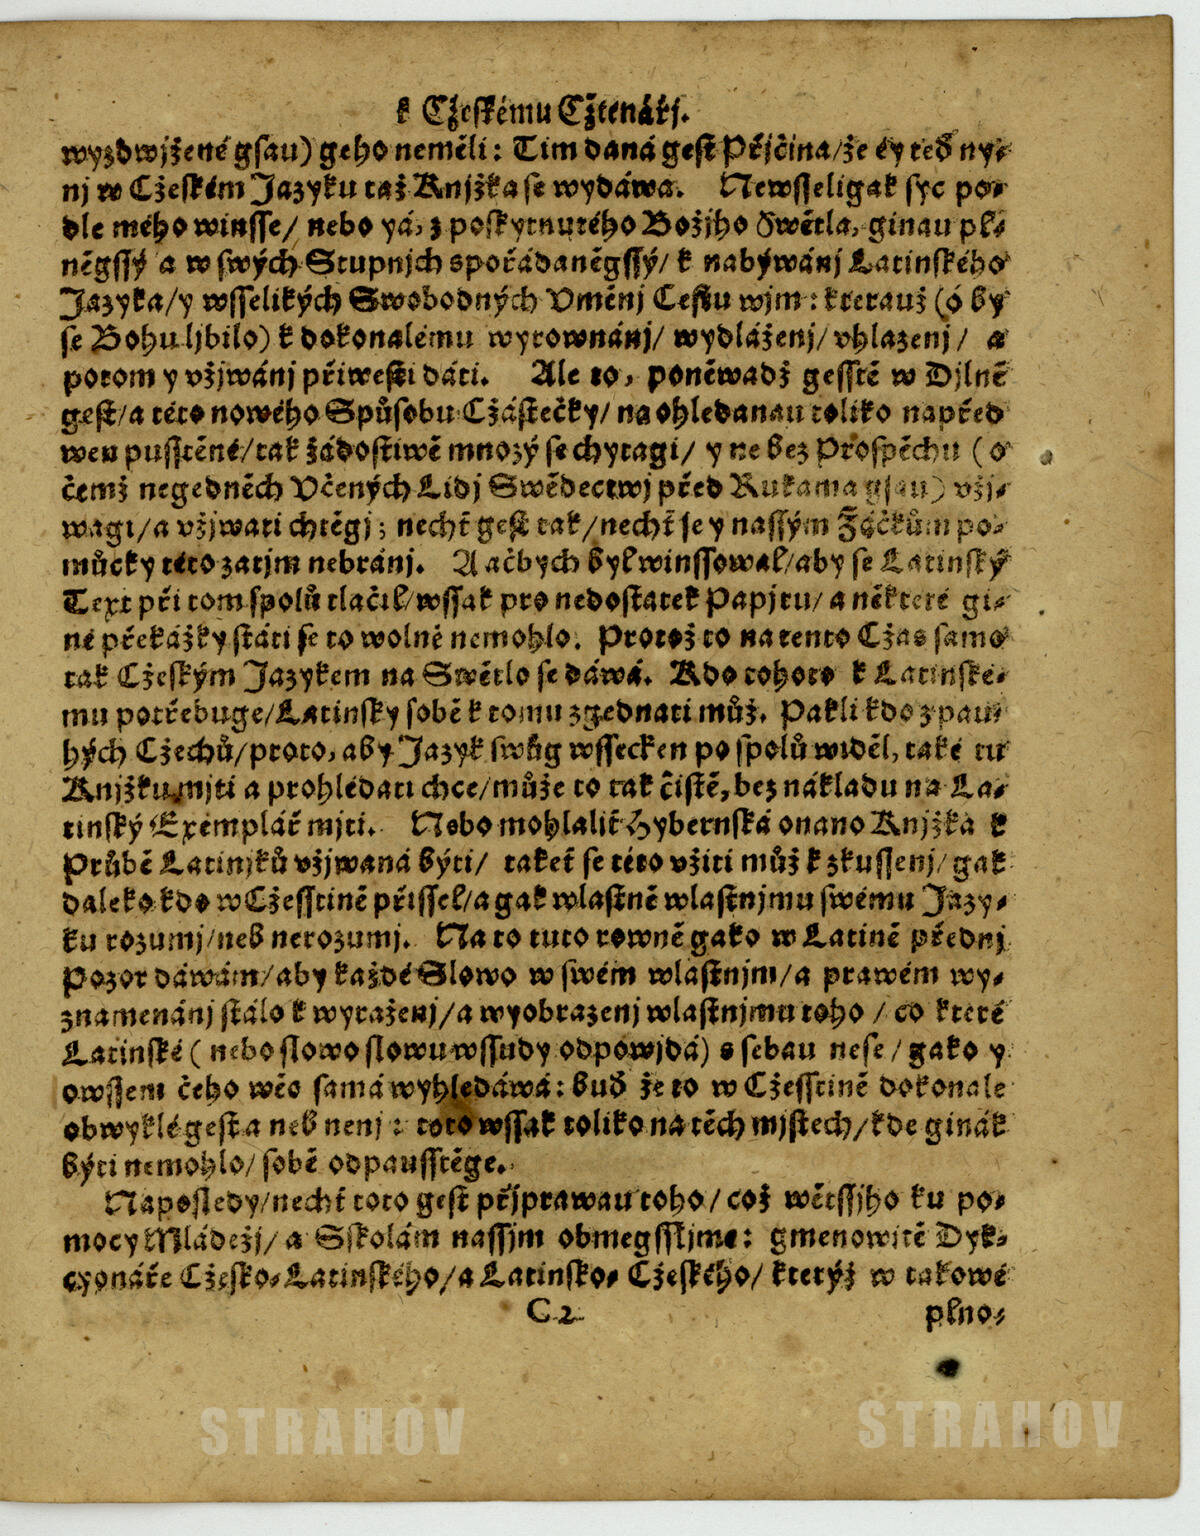 k Cžeskému Cžtenářj.
wyzdwjžené gsau) geho neměli: Tim daná gest Přjčina/že ey teď ny⸗
nj w Cžeském Jazyku taž Knjžka se wydáwa. Newsseligak syc po⸗
dle mého winsse/ nebo yá, z poskytnutého Božjho Swětla, ginau pl⸗
něgssý a w swých Stupnjch spořádaněgssý/ k nabýwánj Latinského
Jazyka/y wsselikých Swobodných Vměnj Cestu wjm: kterauž (ó by
se Bohu ljbilo) k dokonalému wyrownánj/ wydláženj/ vhlazenj/ a
potom y vžjwánj přiwesti dáti. Ale to, poněwadž gesstě w Djlně
gest/a této nowého Spůsobu Cžástečky/ na ohledanau toliko napřed
wen pusstěné/tak žádostiwě mnozý se chytagi/ y ne bez Prospěchu (o
čemž negedněch Včených Lidj Swědectwj před Rukama gsau) vžj⸗
wagi/a vžjwati chtěgj; nechť gest tak/nechť se y nassým Žáčkům po⸗
můcky této zatjm nebránj. A ačbych byl winssowal/aby se Latinský
Text při tom spolů tlačil/wssak pro nedostatek Papjru/ a některé gi⸗
né překážky státi se to wolně nemohlo. Protož to na tento Cžas samo
tak Cžeským Jazykem na Swětlo se dáwá. Kdo tohoto k Latinské⸗
mu potřebuge/Latinský sobě k tomu zgednati můž. Pakli kdo z pau⸗
hých Cžechů/proto, aby Jazyk swůg wssecken po spolů widěl, také tu
Knjžku mjti a prohlédati chce/může to tak čistě, bez nákladu na La⸗
tinský Exemplář mjti. Nebo mohlaliť Hybernská onano Knjžka k
Průbě Latinjků vžjwaná býti/ takeť se této vžiti můž k zkussenj/ gak
daleko kdo w Cžesstině přissel/a gak wlastně wlastnjmu swému Jazy⸗
ku rozumj/neb nerozumj. Na to tuto rowně gako w Latině přednj
Pozor dáwám/aby každé Slowo w swém wlastnjm/a prawém wy⸗
znamenánj stálo k wyraženj/a wyobrazenj wlastnjmu toho / co které
Latinské ( nebo slowo slowu wssudy odpowjdá) s sebau nese / gako y
owssem čeho wěc samá wyhledáwá: buď že to w Cžesstině dokonale
obwyklé gest a neb nenj: toto wssak toliko na těch mjstech/kde ginák
býti nemohlo/ sobě odpausstěge.
Naposledy/nechť toto gest přjprawau toho/ což wětssjho ku po⸗
mocy Mládežj/ a Sskolám nassjm obmegssljme: gmenowitě Dyk⸗
cyonáře Cžesko⸗Latinského/a Latinsko⸗ Cžeského/ kterýž w takowé
C 2
plno⸗
STRAHOV
STRAHOV